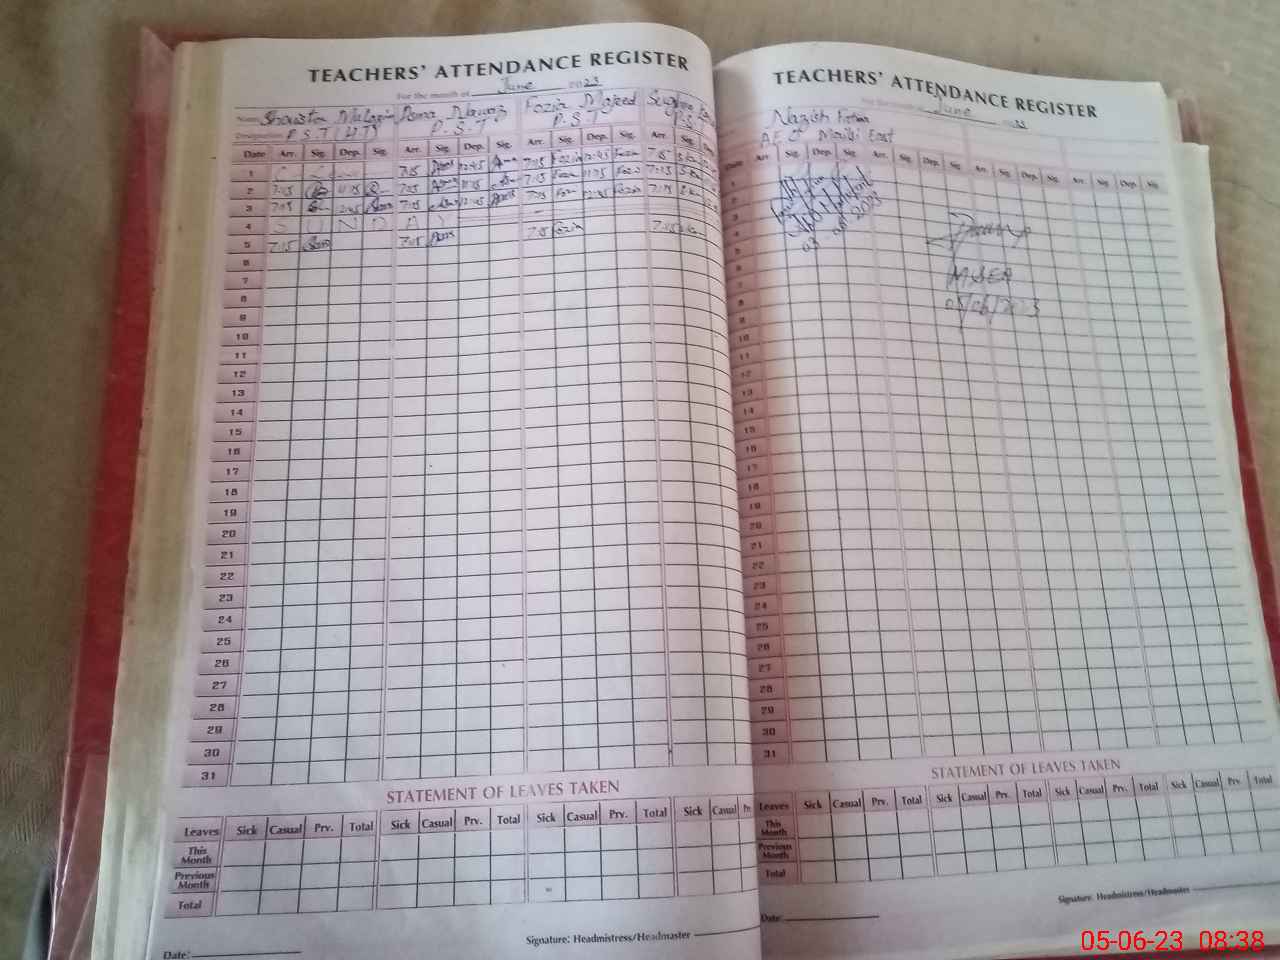 TEACHERS' ATTENDANCE REGISTER
For the month of June 2023
Name Asma Nawaz Fozia Majeed
Designation P.S.T (HT) P.S.T P.S.T P.S.T
Date Arr. Sig. Dep. Sig. Arr. Sig. Dep. Sig. Arr. Sig. Dep. Sig. Arr. Sig. Dep.
1 7:15 12:45 7:15 Fozia 12:45 Fozia 7:15
2 7:15 11:15 7:15 11:15 7:15 11:15 7:15
3 7:15 12:45 7:15 12:45 7:15 12:45 Fozia 7:15
4 S U N D A Y
5 7:15 7:15 7:15 Fozia 7:15
6
7
8
9
10
11
12
13
14
15
16
17
18
19
20
21
22
23
24
25
26
27
28
29
30
31
STATEMENT OF LEAVES TAKEN
Leaves Sick Casual Prv. Total Sick Casual Prv. Total Sick Casual Prv. Total Sick Casual Pr
This Month
Previous Month
Total
Signature: Headmistress/Headmaster
Date:
TEACHERS' ATTENDANCE REGISTER
For the month of June
Nazish Fatima
Date Arr. Sig. Dep. Sig. Arr. Sig. Dep. Sig. Arr. Sig. Dep. Sig. Arr. Sig. Dep. Sig.
1
2
3
4
5
6
7
8
9
10
11
12
13
14
15
16
17
18
19
20
21
22
23
24
25
26
27
28
29
30
31
MSEA
05/06/2023
STATEMENT OF LEAVES TAKEN
Leaves Sick Casual Prv. Total Sick Casual Prv. Total Sick Casual Prv. Total Sick Casual Prv. Total
This Month
Previous Month
Total
Signature: Headmistress/Headmaster
Date:
05-06-23 08:38